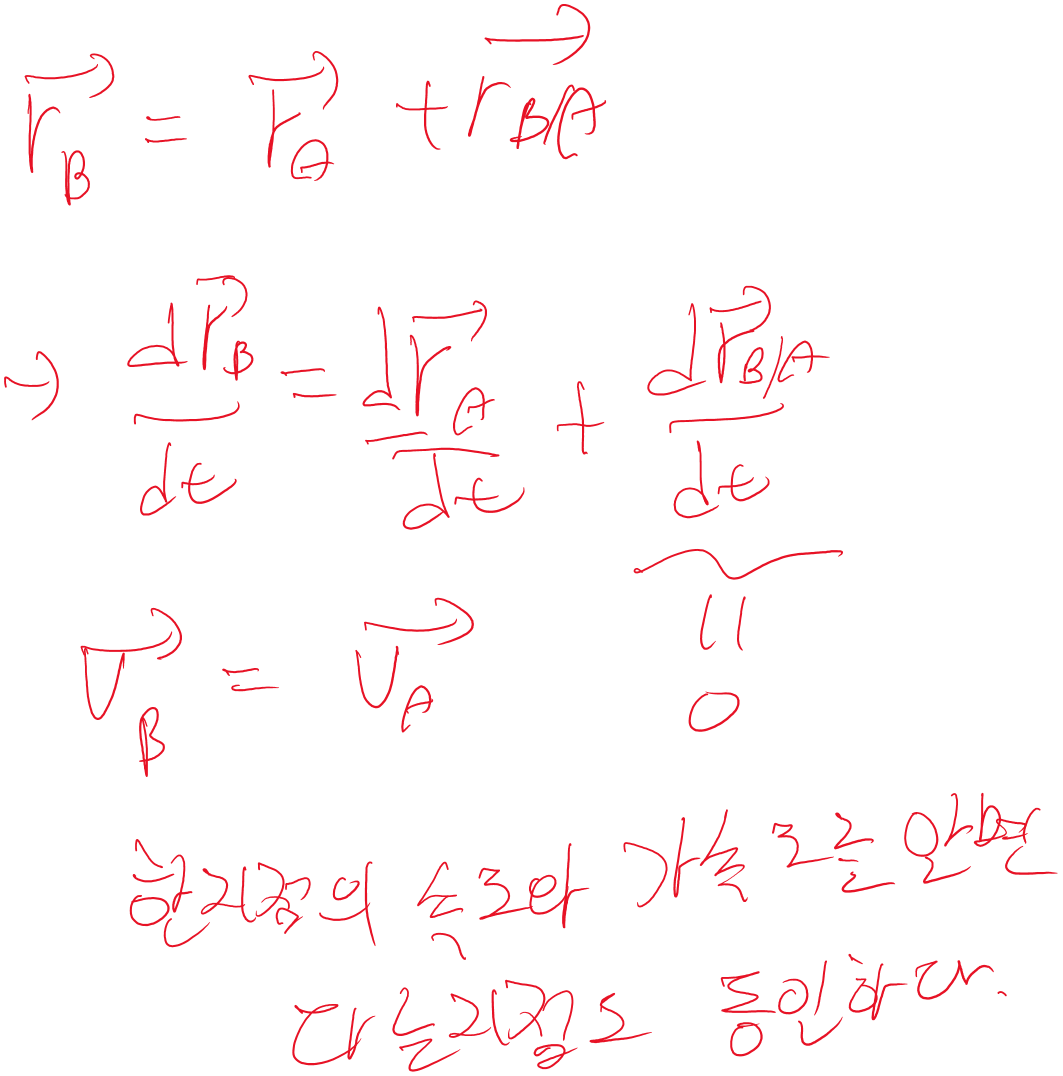 $\vec{r}_B = \vec{r}_A + \vec{r}_{B/A}$
→ $\frac{d\vec{r}_B}{dt} = \frac{d\vec{r}_A}{dt} + \frac{d\vec{r}_{B/A}}{dt}$
"
0
$\vec{v}_B = \vec{v}_A$
한지점의 속도와 가속도를 알면
다른지점도 동일하다.